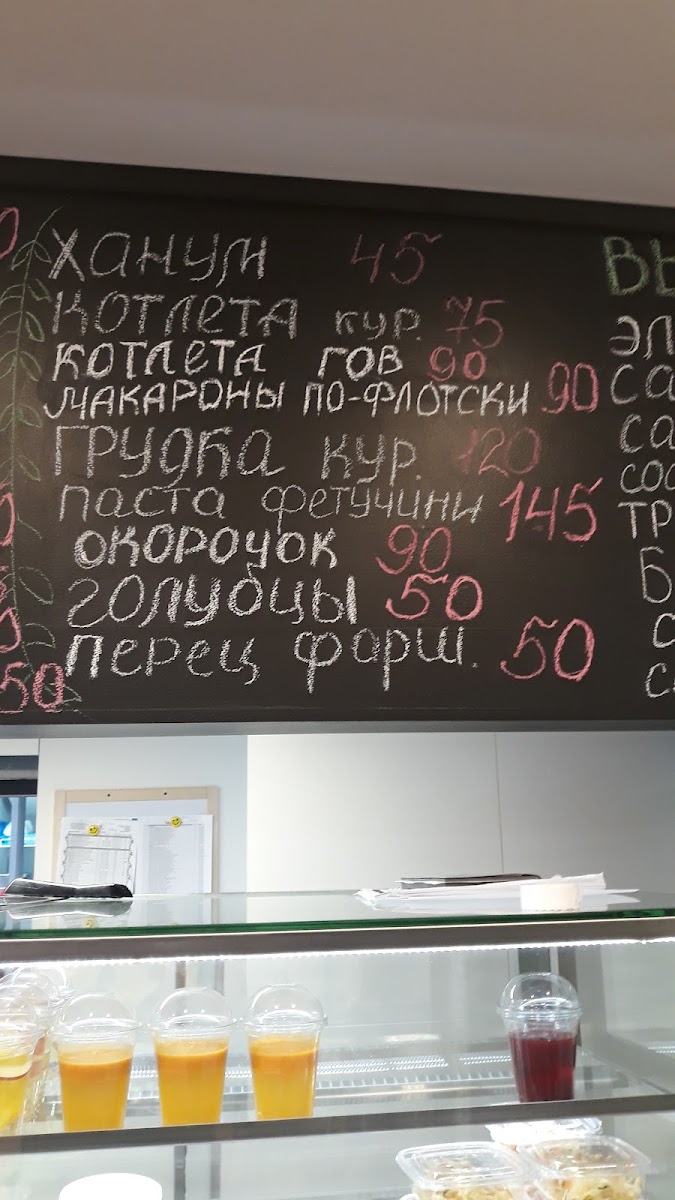 ханум 45
котлета кур. 75
котлета гов 90
макароны по-флотски 90
грудка кур. 120
паста фетучини 145
окорочок 90
голубцы 50
перец фарш. 50
50